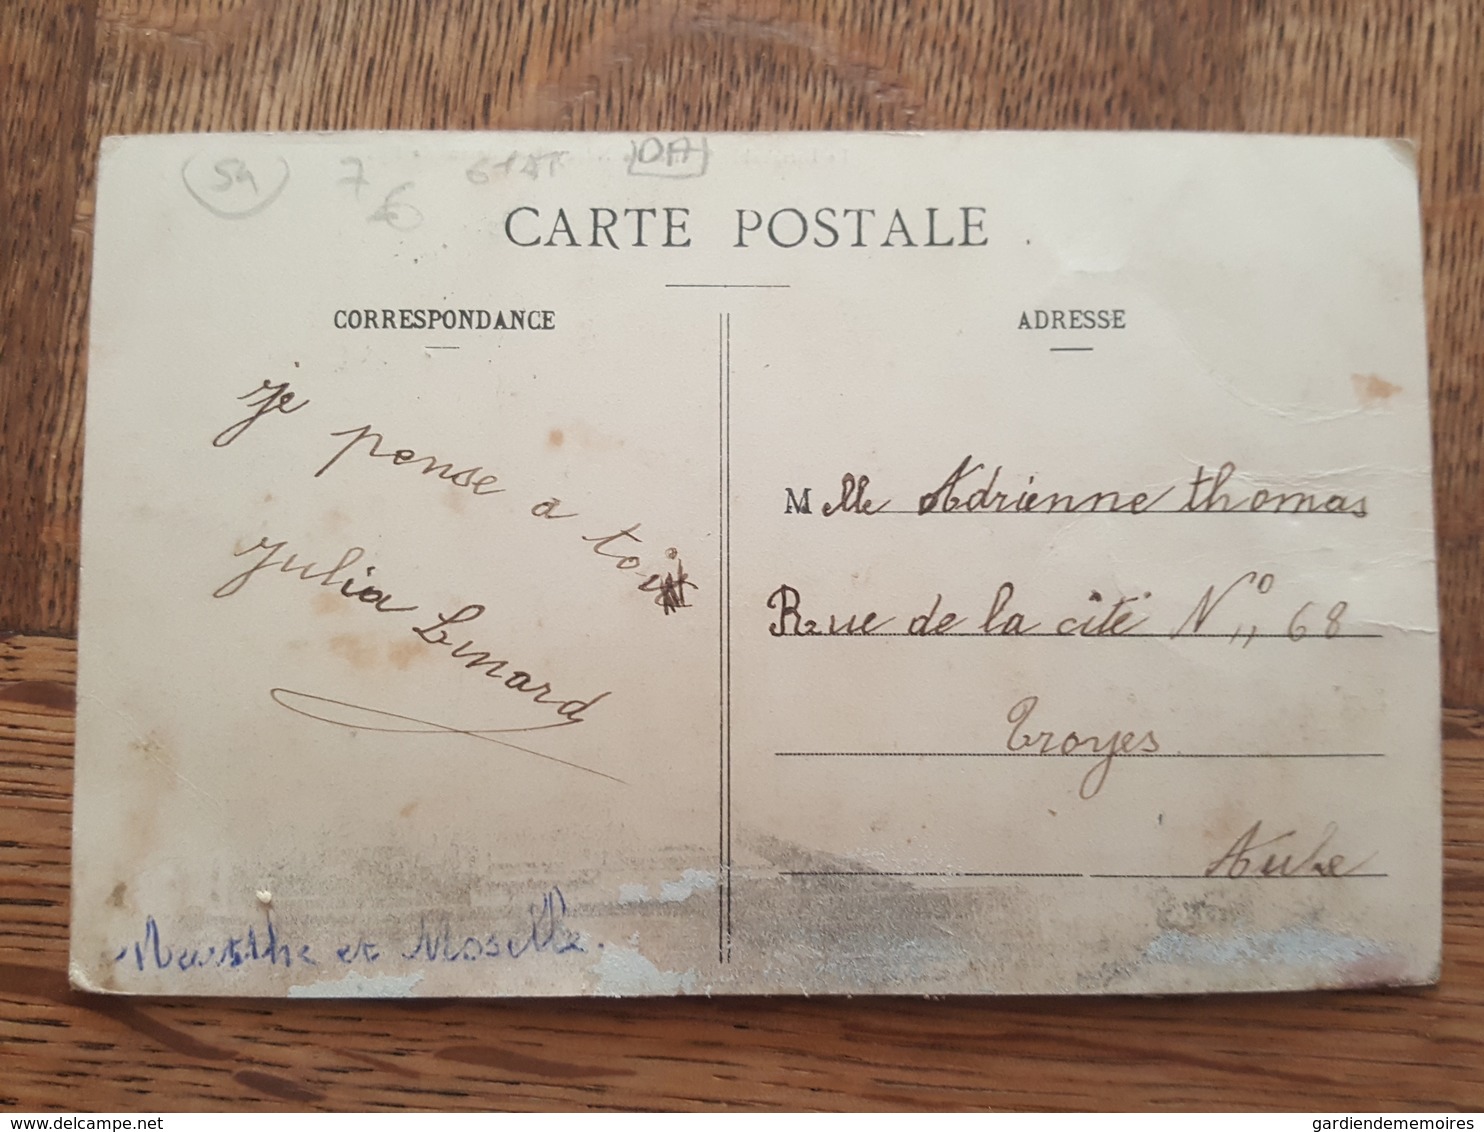 54
7
6
DA
CARTE POSTALE
CORRESPONDANCE
je pense a toi
Julia Linard
Meurthe et Moselle.
ADRESSE
Mlle Adrienne thomas
Rue de la cité N° 68
Troyes
Aube
delcampe.net
gardiendememoires